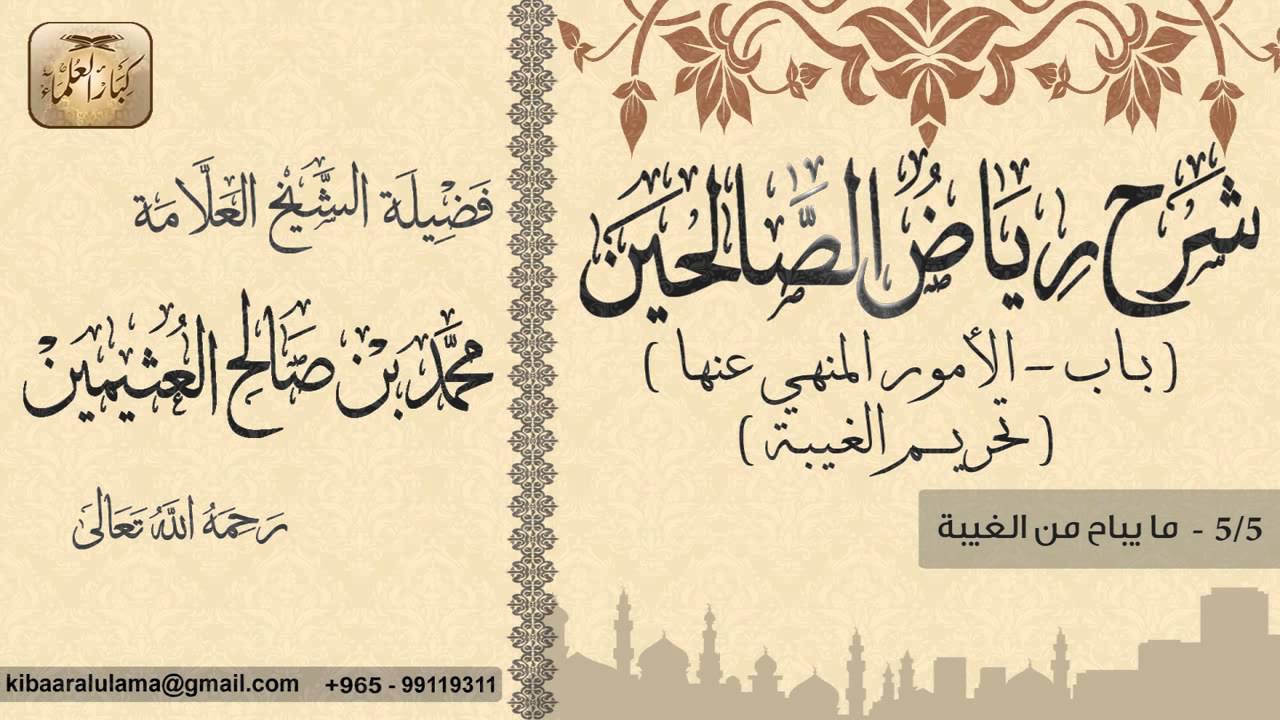 شَرْح رِيَاضُ الصَّالحِيَن
( باب - الأمور المنهي عنها )
( تحريم الغيبة )
5/5 - ما يباح من الغيبة
كِبَارُ العُلَمَاءِ
فَضِيلَة الشَّيْخ العَلَّامَة
محمَّد بْن صَالح العُثيمِين
رَحِمَهُ اللَّهُ تَعَالىَ
kibaaralulama@gmail.com +965 - 99119311